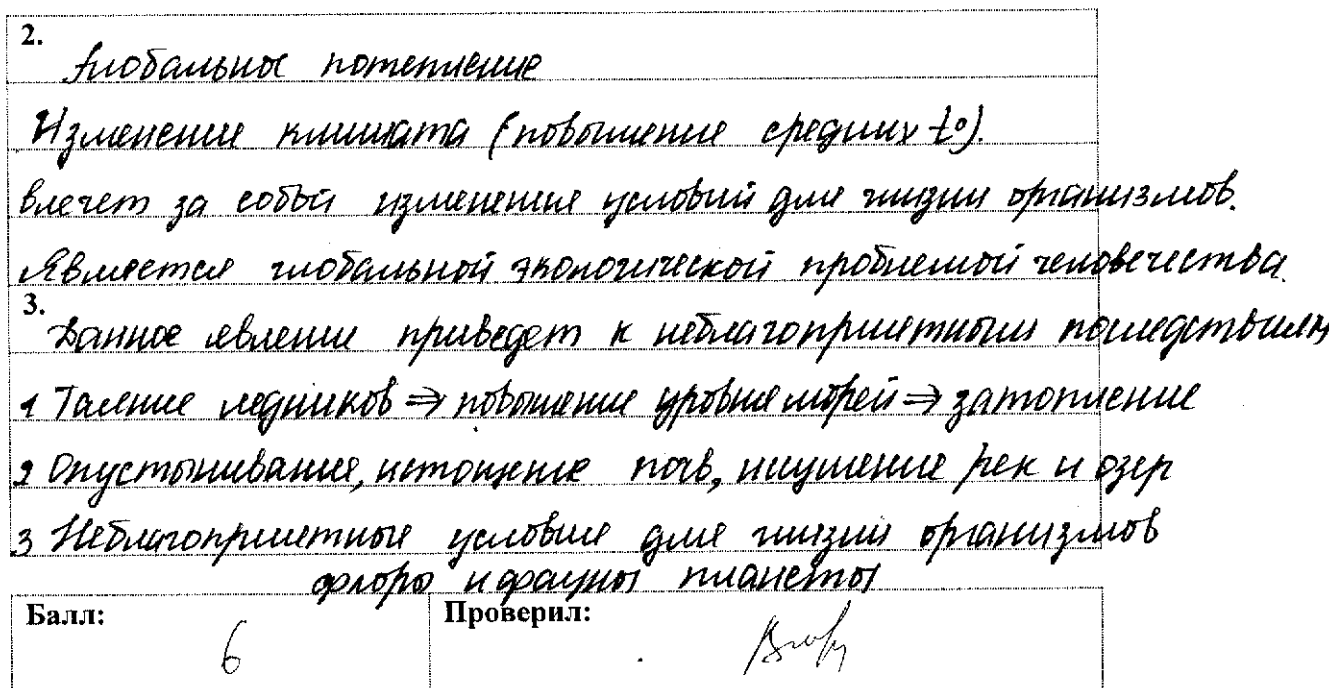 2.
Глобальное потепление
Изменение климата (повышение средних t°).
влечет за собой изменения условий для жизни организмов.
Является глобальной экологической проблемой человечества.
3.
Данное явление приведет к неблагоприятным последствиям
1 Таяние ледников ⇒ повышение уровня морей ⇒ затопление
2 Опустынивания, истощение почв, рек и озер
3 Неблагоприятные условия для жизни организмов
флоры и фауны планеты
Балл: Проверил:
6